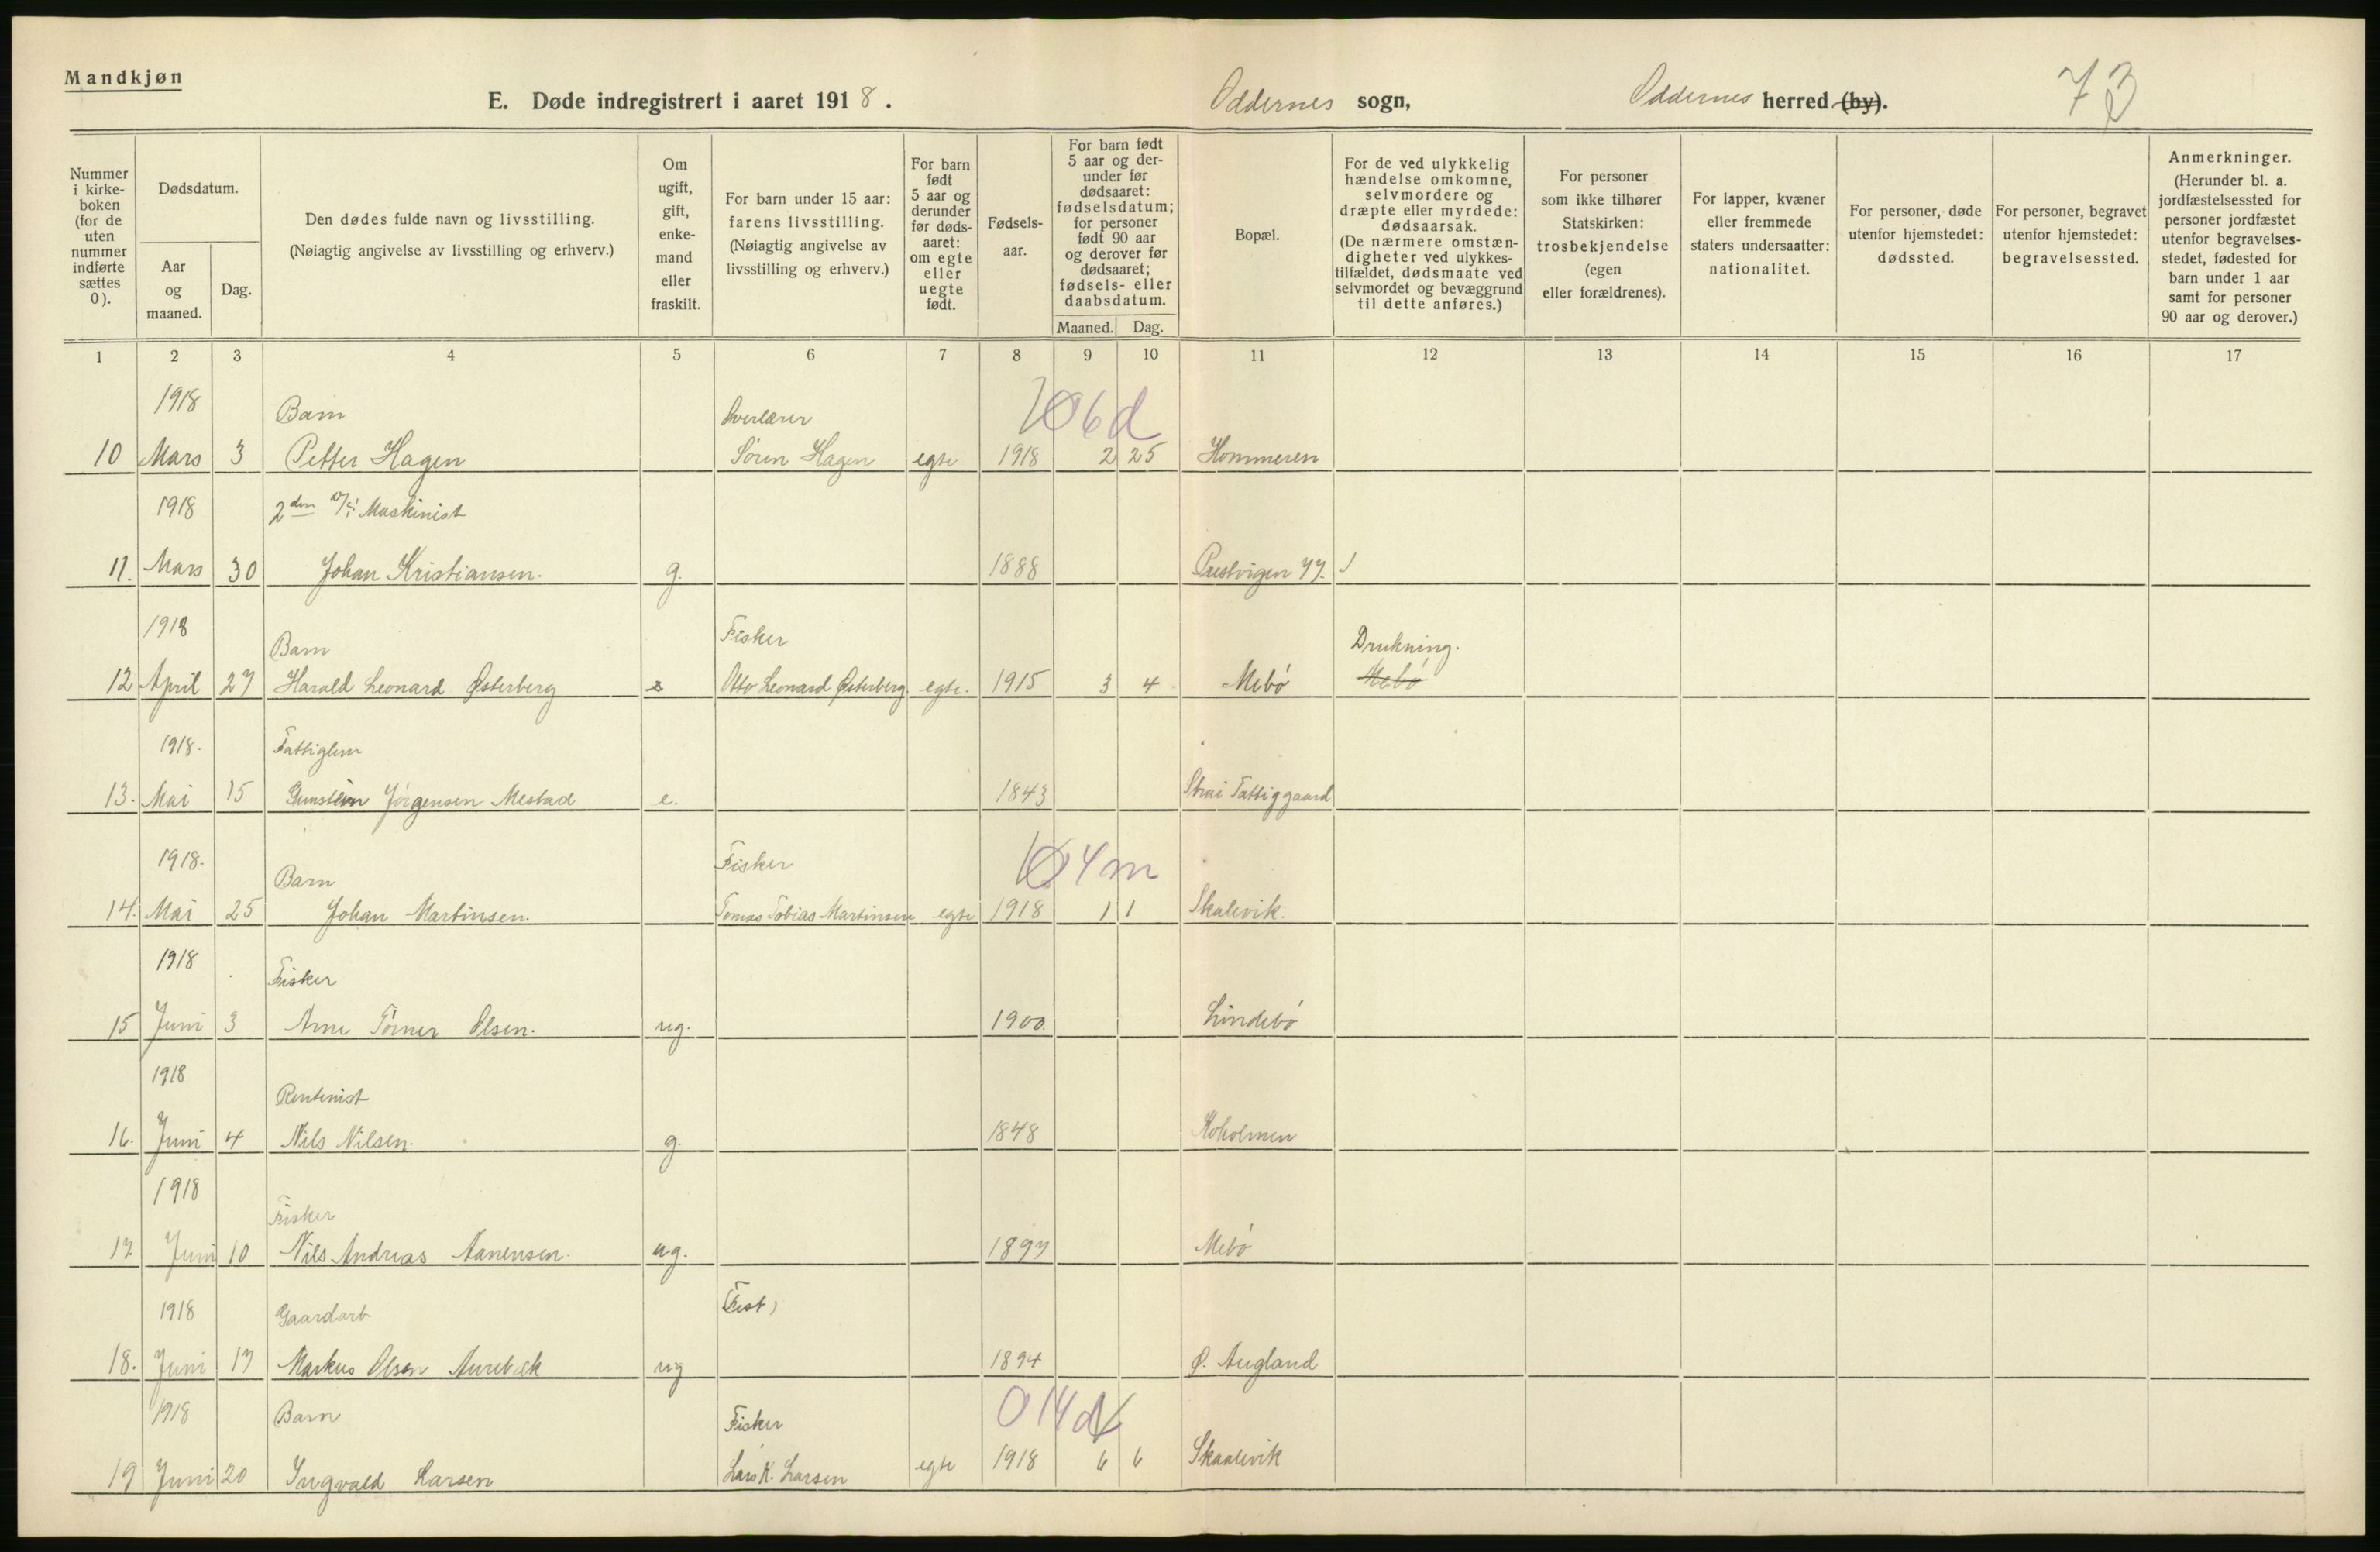 Mandkjøn
E. Døde indregistrert i aaret 1918.
Oddernes sogn,
Oddernes herred (by).
73
Nummer i kirkeboken (for de uten nummer indførte sættes 0).
Dødsdatum.
Aar og maaned.
Dag.
Den dødes fulde navn og livsstilling.
(Nøiagtig angivelse av livsstilling og erhverv.)
Om ugift, gift, enkemand eller fraskilt.
For barn under 15 aar: farens livsstilling.
(Nøiagtig angivelse av livsstilling og erhverv.)
For barn født 5 aar og derunder før dødsaaret: om egte eller uegte født.
Fødselsaar.
For barn født 5 aar og derunder før dødsaaret: fødselsdatum; for personer født 90 aar og derover før dødsaaret; fødsels- eller daabsdatum.
Maaned. Dag.
Bopæl.
For de ved ulykkelig hændelse omkomne, selvmordere og dræpte eller myrdede: dødsaarsak.
(De nærmere omstændigheter ved ulykkestilfældet, dødsmaate ved selvmordet og bevæggrund til dette anføres.)
For personer som ikke tilhører Statskirken: trosbekjendelse (egen eller forældrenes).
For lapper, kvæner eller fremmede staters undersaatter: nationalitet.
For personer, døde utenfor hjemstedet: dødssted.
For personer, begravet utenfor hjemstedet: begravelsessted.
Anmerkninger.
(Herunder bl. a. jordfæstelsessted for personer jordfæstet utenfor begravelsesstedet, fødested for barn under 1 aar samt for personer 90 aar og derover.)
1 2 3 4 5 6 7 8 9 10 11 12 13 14 15 16 17
1918 Barn Overlærer 6 d
10 Mars 3 Petter Hagen Sören Hagen egte 1918 2 25 Hommeren
1918 2den Maskinist
11. Mars 30 Johan Kristiansen. g. 1888 Prestvigen
1918 Barn Fisker Drukning.
12 April 27 Harald Leonard Østerberg Otto Leonard Østerberg. egte. 1915 3 4 Mebö Mebö
1918. Fattiglem
13. Mai 15 Gunstein Jörgensen Mestad e. 1843 Strai Fattiggaard
1918. Barn Fisker 4 m
14. Mai 25 Johan Martinsen. Tomas Tobias Martinsen egte 1918 1 1 Skalevik.
1918 Fisker
15 Juni 3 Arne Törner Olsen. ug. 1900. Lindebö
1918 Rentenist
16. Juni 4 Nils Nilsen. g. 1848 Koholmen
1918 Fisker
17. Juni 10 Nils Andreas Aanensen. ug. 1897 Mebö
1918 Gaardarb. (Fest)
18. Juni 17 Markus Olsen Aurebæk ug 1894 Ø. Augland
1918 Barn Fisker 0 14 d
19 Juni 20 Ingvald Larsen Lars K. Larsen egte 1918 6 6 Skaalevik